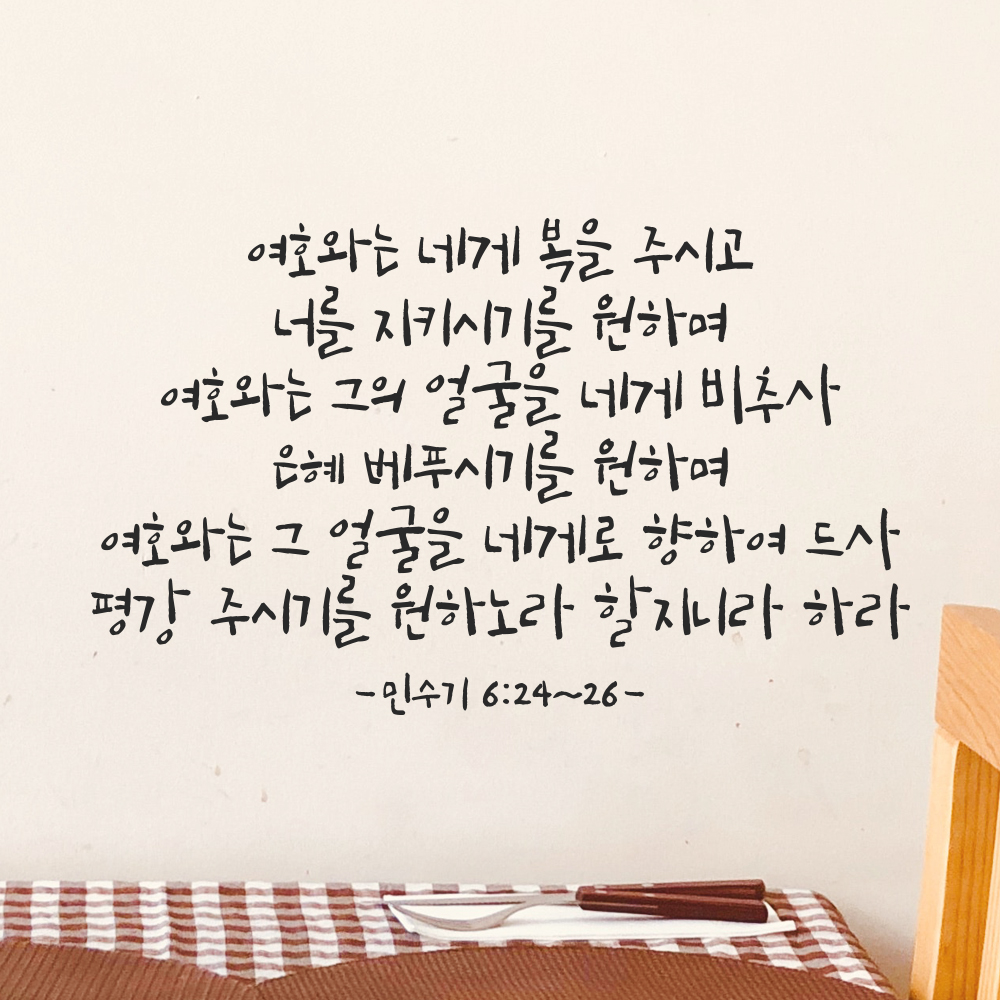 여호와는 네게 복을 주시고
너를 지키시기를 원하며
여호와는 그의 얼굴을 네게 비추사
은혜 베푸시기를 원하며
여호와는 그 얼굴을 네게로 향하여 드사
평강 주시기를 원하노라 할지니라 하라
-민수기 6:24~26-